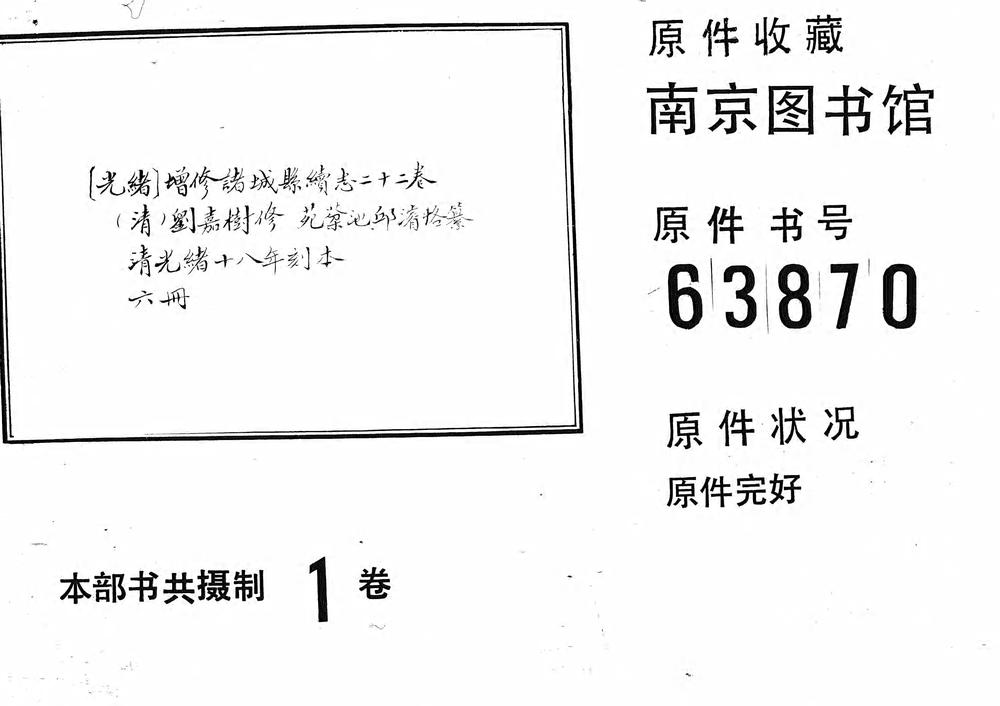 〔光緒〕增修諸城縣續志二十二卷
（清）劉嘉樹修 苑棻池邱濬恪纂
清光緒十八年刻本
六冊
原件收藏
南京图书馆
原件书号
63870
原件状况
原件完好
本部书共摄制 1 卷